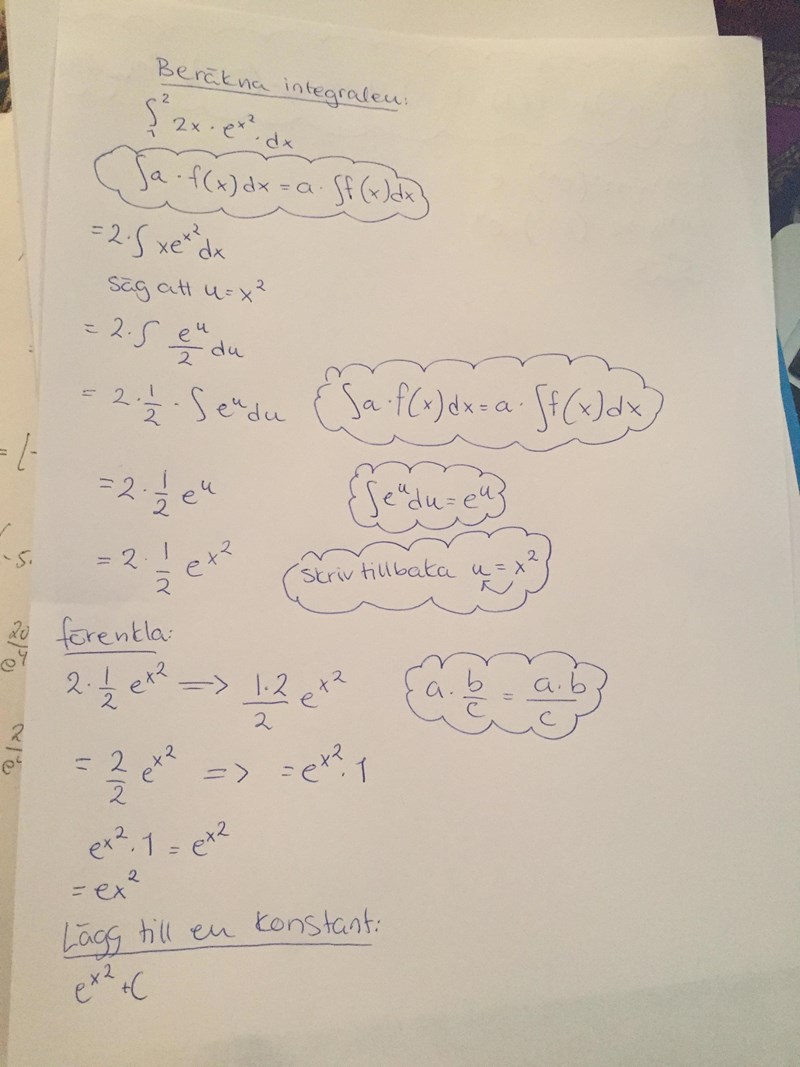 Beräkna integralen:
∫₁² 2x · e^x² · dx
∫a · f(x)dx = a · ∫f(x)dx
= 2 · ∫ xe^x² dx
säg att u = x²
= 2 · ∫ e^u/2 du
= 2 · 1/2 · ∫ e^u du
∫a · f(x)dx = a · ∫f(x)dx
= 2 · 1/2 e^u
∫e^u du = e^u
= 2 · 1/2 e^x²
Skriv tillbaka u = x²
förenkla:
2 · 1/2 e^x² => 1·2/2 e^x²
a · b/c = a·b/c
= 2/2 e^x² => = e^x² · 1
e^x² · 1 = e^x²
= ex²
Lägg till en konstant:
e^x² + C
= (-
-5.
20
e⁴
2